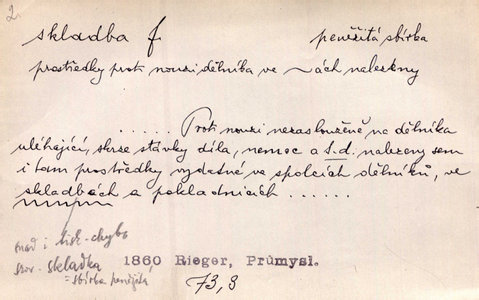 2.
skladba f. peněžitá sbírka
prostředky proti nouzi dělníka ve ~ách nalezeny
. . . . . Proti nouzi nezaslouženě na dělníka
uléhající, skrze stávky díla, nemoc a t.d. nalezeny sem
i tam prostředky vydatné ve spolcích dělníků, ve
skladbách a pokladnicích . . . . . .
snad i tisk. chyba
srov. skladka
= sbírka peněžitá
1860 Rieger, Průmysl.
73,3